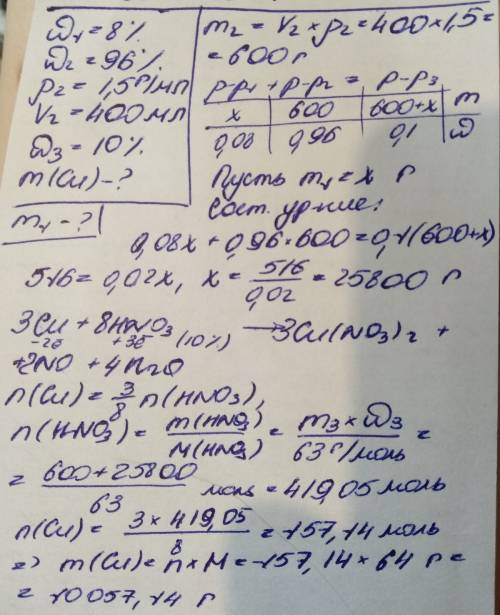 ω₁=8%
ω₂=96%
ρ₂=1,5г/мл
V₂=400мл
ω₃=10%
m(Cu)-?
m₁-?
m₂=V₂×ρ₂=400×1,5=
=600г
р-р₁+р-р₂=р-р₃
x | 600 | 600+x | m
0,08 | 0,96 | 0,1 | ω
Пусть m₁=x г
Сост. ур-ние:
0,08x+0,96×600=0,1(600+x)
516=0,02x, x=516/0,02=25800 г
3Cu+8HNO₃(10%)→3Cu(NO₃)₂+
-2e +3e
+2NO+4H₂O
n(Cu)=3/8 n(HNO₃),
n(HNO₃)=m(HNO₃)/M(HNO₃)=m₃×ω₃/63г/моль=
=600+25800/63 моль=419,05моль
n(Cu)=3×419,05/8=157,14 моль
=> m(Cu)=n×M=157,14×64 г=
=10057,14 г